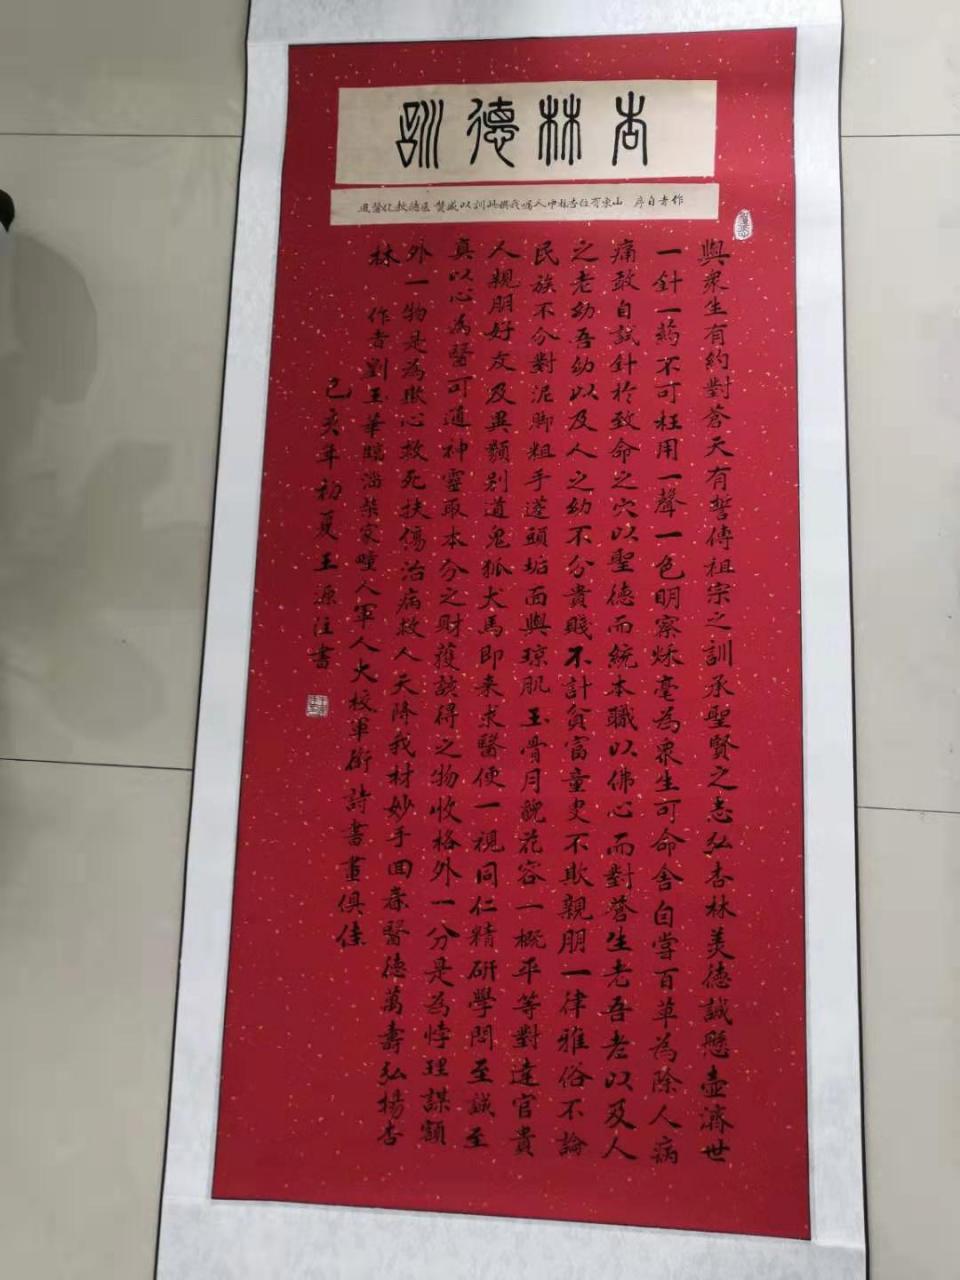 杏林德訓
作者自序 山東有位杏林中人囑我撰此訓以感贊医德教化醫道
與衆生有約對蒼天有誓傳祖宗之訓承聖賢之志弘杏林美德誠懸壺濟世
一針一葯不可枉用一聲一色明察秋毫為衆生可命舍自嘗百草為除人病
痛敢自試針於致命之穴以聖德而統本職以佛心而對蒼生老吾老以及人
之老幼吾幼以及人之幼不分貴賤不計貧富童叟不欺親朋一律雅俗不論
民族不分對泥脚粗手蓬頭垢面與瓊肌玉骨月貌花容一概平等對達官貴
人親朋好友及異類别道鬼狐犬馬即来求醫便一視同仁精研學問至誠至
真以心為醫可通神靈取本分之財獲該得之物收格外一分是為悖理謀額
外一物是為欺心救死扶傷治病救人天降我材妙手回春醫德萬壽弘揚杏
林 作者劉玉華臨淄柴家疃人軍人大校軍銜詩書畫俱佳
己亥年初夏王源注書